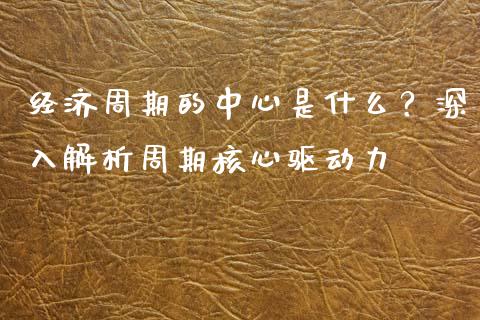 经济周期的中心是什么？深
入解析周期核心驱动力